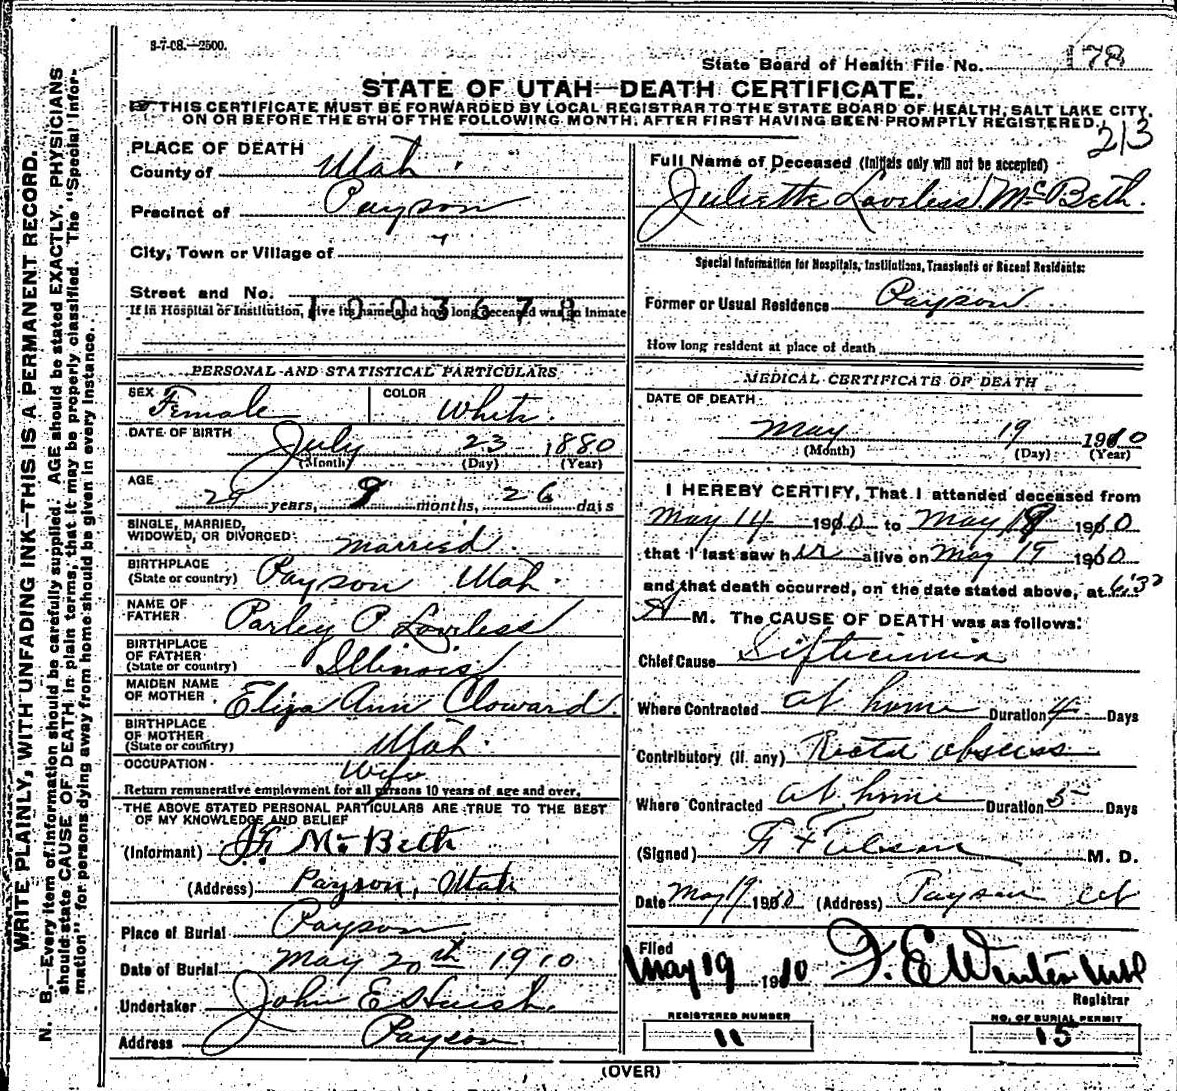 S-7-08.—2500.
State Board of Health File No. 178
STATE OF UTAH—DEATH CERTIFICATE.
THIS CERTIFICATE MUST BE FORWARDED BY LOCAL REGISTRAR TO THE STATE BOARD OF HEALTH, SALT LAKE CITY,
ON OR BEFORE THE 5TH OF THE FOLLOWING MONTH, AFTER FIRST HAVING BEEN PROMPTLY REGISTERED.
213
WRITE PLAINLY, WITH UNFADING INK—THIS IS A PERMANENT RECORD.
N. B.—Every item of information should be carefully supplied. AGE should be stated EXACTLY. PHYSICIANS
should state CAUSE OF DEATH in plain terms, that it may be properly classified. The "Special Infor-
mation" for persons dying away from home should be given in every instance.
PLACE OF DEATH
County of Utah
Precinct of Payson
City, Town or Village of
Street and No.
1003678
If in Hospital or Institution, give its name and how long deceased was an inmate
PERSONAL AND STATISTICAL PARTICULARS
SEX Female COLOR White.
DATE OF BIRTH July 23 1880
(Month) (Day) (Year)
AGE
29 years, 9 months, 26 days
SINGLE, MARRIED,
WIDOWED, OR DIVORCED: Married
BIRTHPLACE
(State or country) Payson Utah.
NAME OF
FATHER Parley P Loveless
BIRTHPLACE
OF FATHER
(State or country) Illinois
MAIDEN NAME
OF MOTHER Eliza Ann Cloward
BIRTHPLACE
OF MOTHER
(State or country) Utah.
OCCUPATION Wife
Return remunerative employment for all persons 10 years of age and over.
THE ABOVE STATED PERSONAL PARTICULARS ARE TRUE TO THE BEST
OF MY KNOWLEDGE AND BELIEF
(Informant) McBeth
(Address) Payson, Utah
Place of Burial Payson
Date of Burial May 20th 1910
Undertaker John E Huish.
Address Payson
Full Name of Deceased (Initials only will not be accepted)
Juliette Loveless McBeth.
Special Information for Hospitals, Institutions, Transients or Recent Residents:
Former or Usual Residence Payson
How long resident at place of death
MEDICAL CERTIFICATE OF DEATH
DATE OF DEATH
May 19 1910
(Month) (Day) (Year)
I HEREBY CERTIFY, That I attended deceased from
May 14 1910 to May 19 1910
that I last saw her alive on May 19 1910
and that death occurred, on the date stated above, at 6:30
A M. The CAUSE OF DEATH was as follows:
Chief Cause Septicimia
Where Contracted at home Duration 4 Days
Contributory (if any) abscess
Where Contracted at home Duration 5 Days
(Signed) M. D.
Date May 19 1910 (Address) Payson Ut
Filed
May 19 1910 Winter
Registrar
REGISTERED NUMBER
11
NO. OF BURIAL PERMIT
15
(OVER)